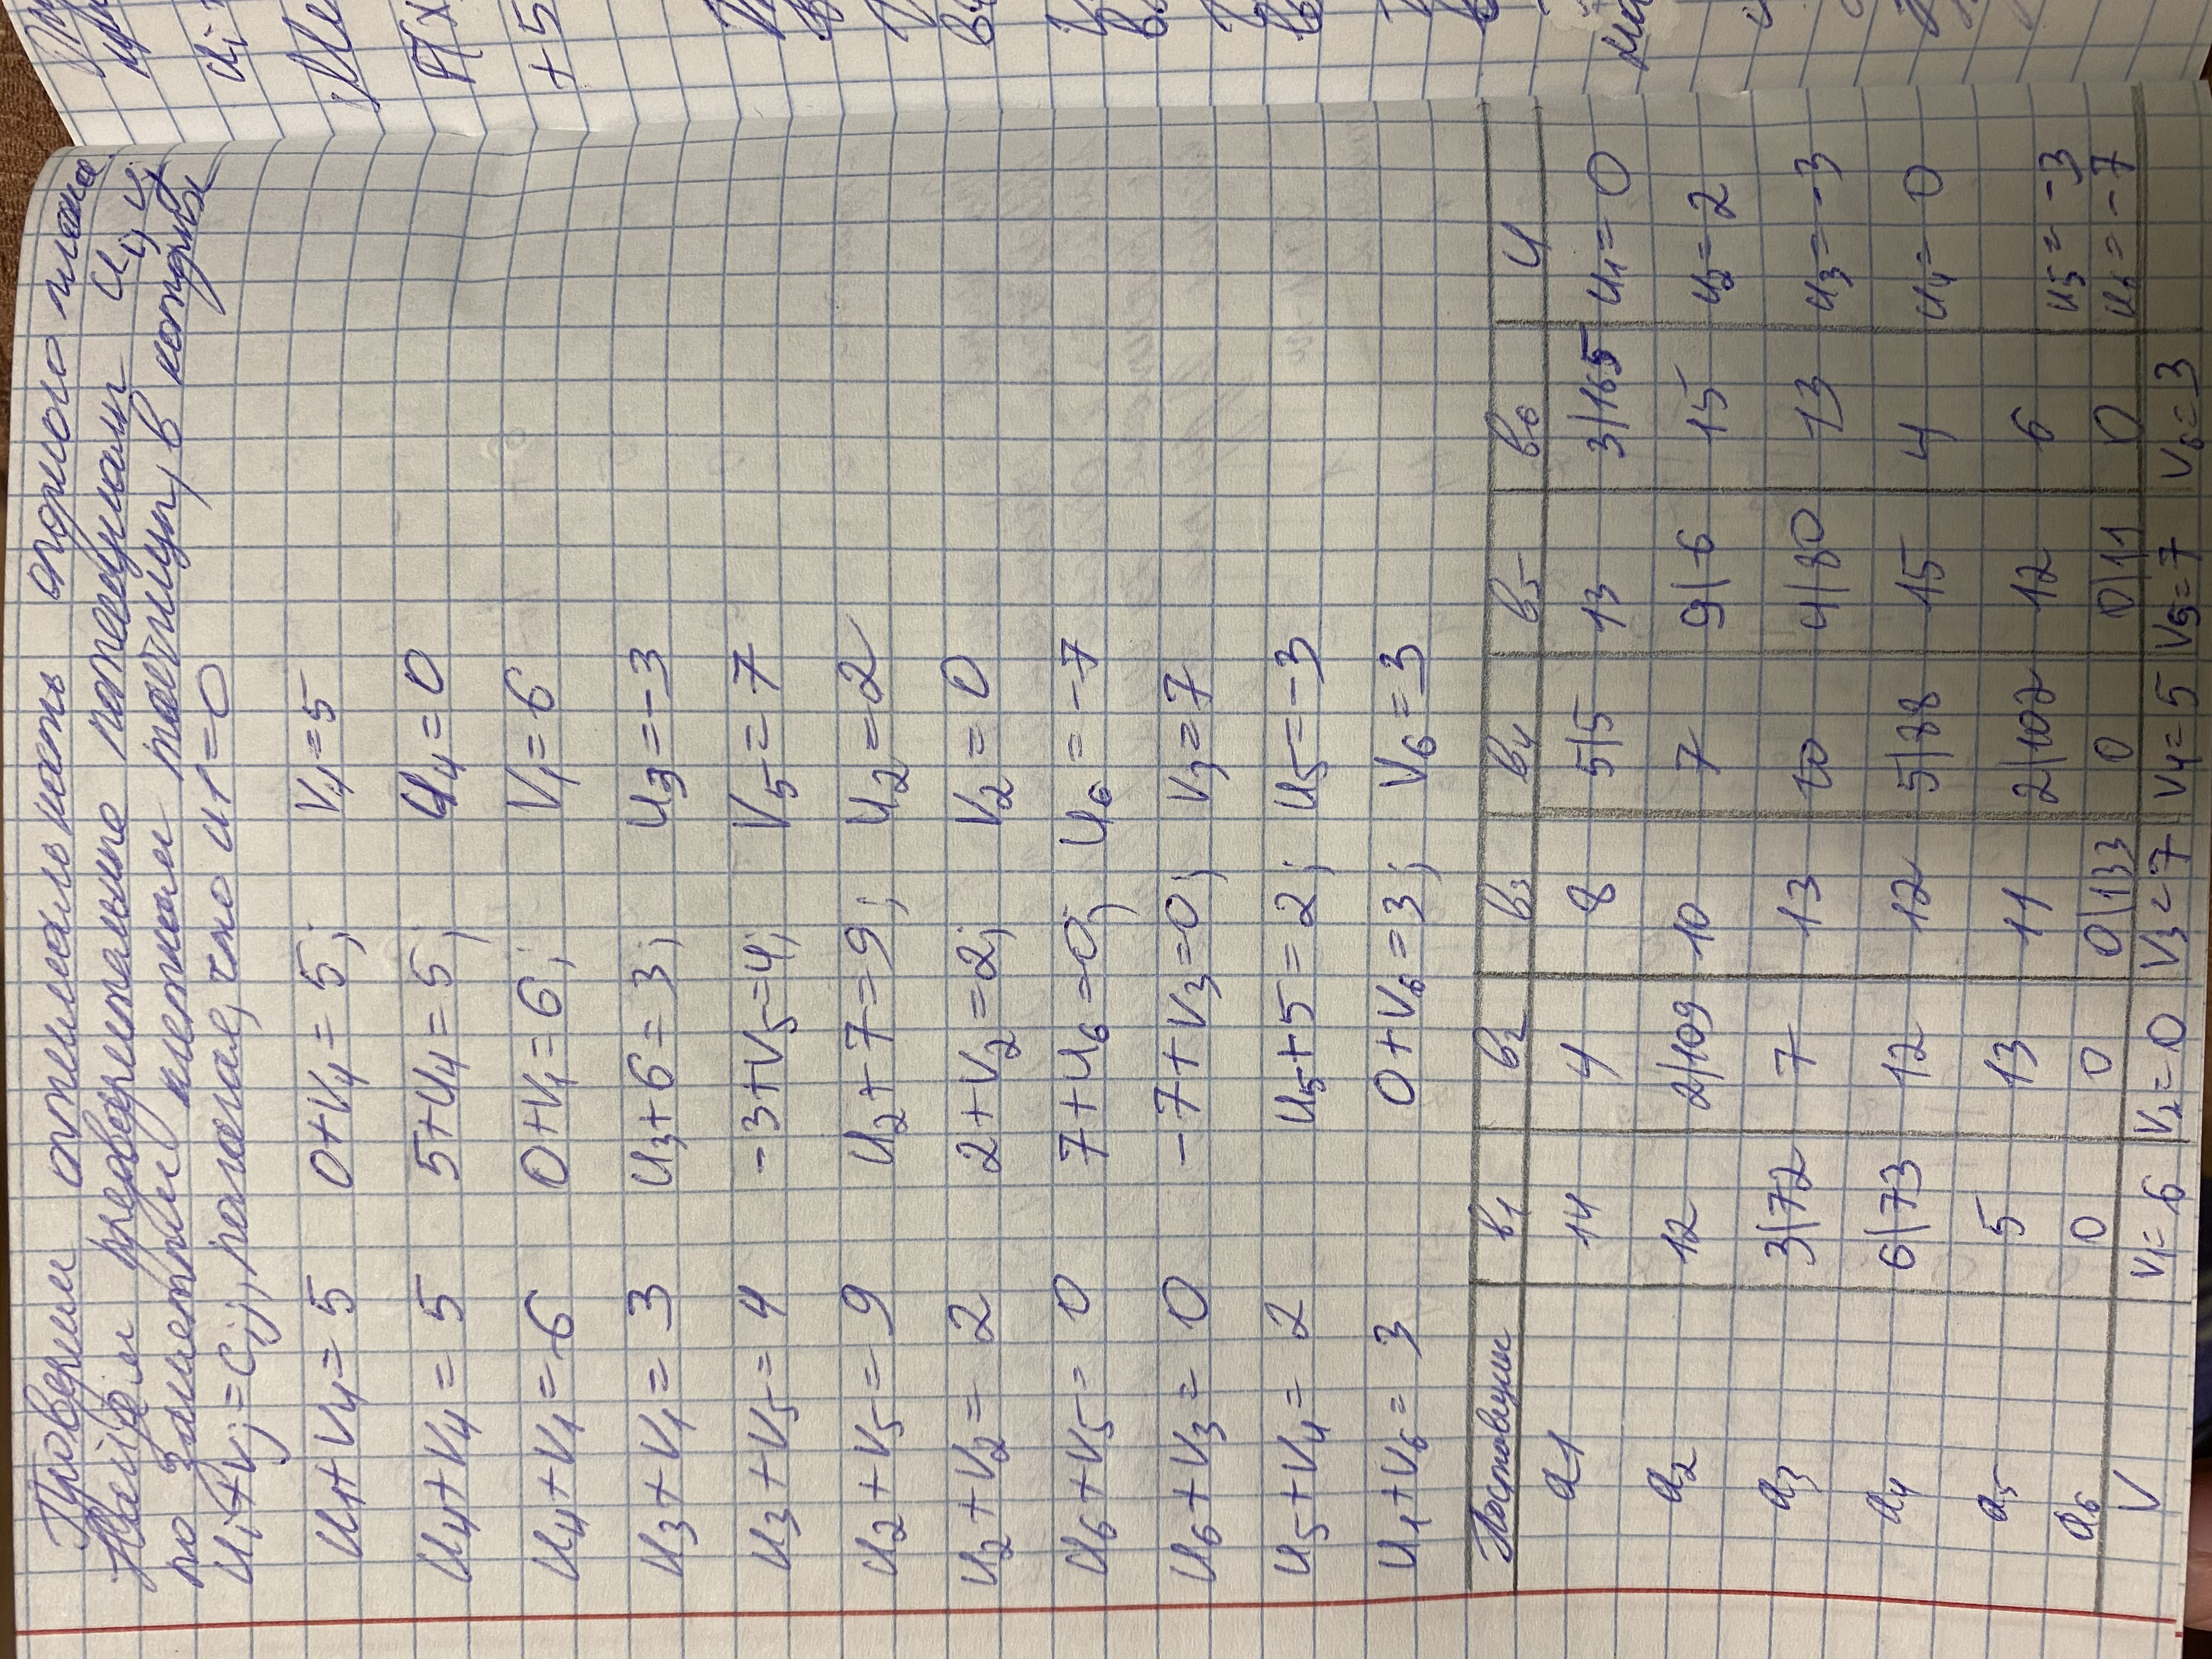 Проверим оптимальность опорного плана.
Найдем предварительные потенциалы ui, vj
по занятым клеткам таблицы, в которых
ui+vj=cij, полагая, что u1=0
u1+v4= 5 0+v4= 5; v4=5
u4+v4= 5 5+u4= 5; u4=0
u4+v1= 6 0+v1= 6; v1=6
u3+v1= 3 u3+6= 3; u3=-3
u3+v5= 4 -3+v5=4; v5= 7
u2+v5= 9 u2+7=9; u2=2
u2+v2= 2 2+v2=2; v2= 0
u6+v5= 0 7+u6=0; u6=-7
u6+v3= 0 -7+v3=0; v3=7
u5+v4= 2 u5+5=2; u5=-3
u1+v6= 3 0+v6=3; v6=3
Поставщики в1 в2 в3 в4 в5 в6 u
a1 14 4 8 5|5 13 3|165 u1= 0
a2 12 2|109 10 7 9|6 15 u2= 2
a3 3|72 7 13 10 4|80 13 u3= -3
a4 6|73 12 12 5|88 15 4 u4= 0
a5 5 13 11 2|102 12 6 u5= -3
a6 0 0 0|133 0 0|11 0 u6= -7
V v1= 6 v2=0 v3=7 v4=5 v5=7 v6=3